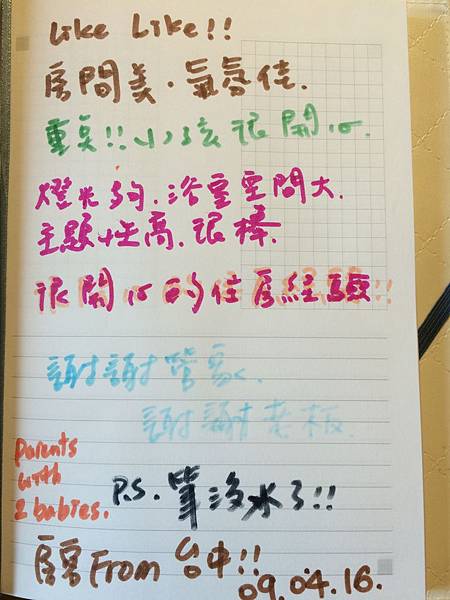 Like Like!!
房間美.氣氛佳.
重點!!小孩很開心.
燈光夠.浴室空間大.
主題性高.很棒.
很開心的住房經驗!!
謝謝管家.
謝謝老板.
Parents
with
2 babies.
P.S. 筆沒水了!!
房客From 台中!!
09.04.16.